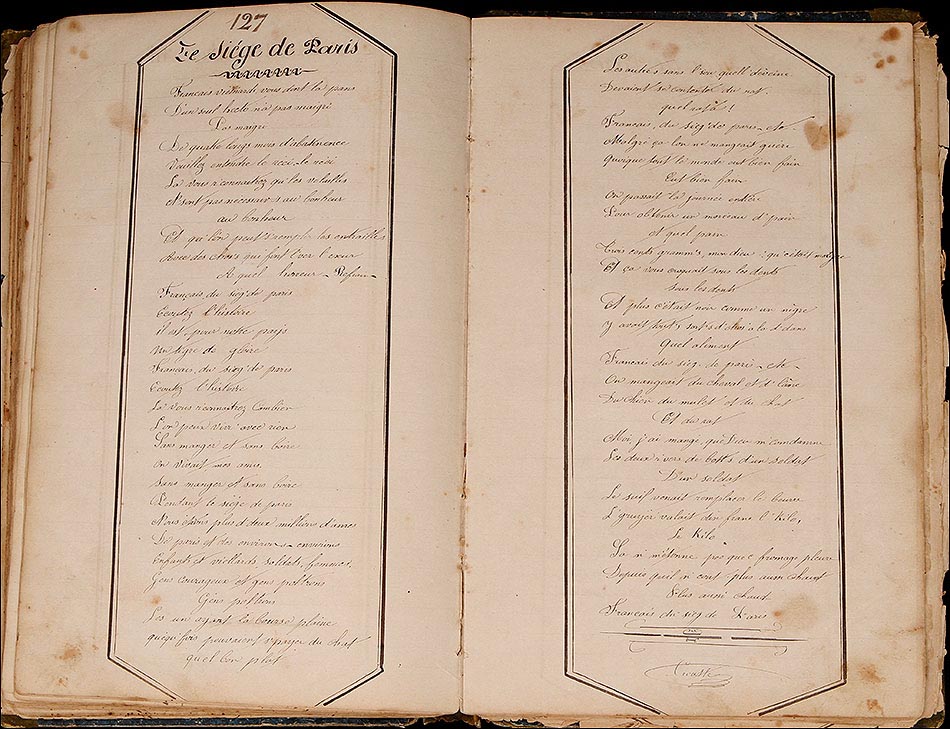 127
Le Siége de Paris
Français vieillards vous dont la pans
D'un seul iacto n'a pas maigri
Pas maigri
De quatre longs mois d'abstinence
Veuillez entendre le reci_le reci
La vous r'connaitrez qu'les volailles
N'sont pas necessair's au bonheur
au bonheur
Et qu'l'on peut s'remplir les entrailles
Avec des choses qui font l'ver l'cœur
A quel horreur _ Refrain _
Français, du sieg' de paris
Ecoutez l'histoire
il est, pour notre pays
Un tigre de gloire
Francais, du sieg' de paris
Ecoutez l'histoire
La vous r'connaitrez Combien
L'on peux vivre avec rien
Sans manger et sans boire
On vivait mes amis,
Sans manger et sans boire
Pendant le siége de paris
Nous étions plus d'deux millions d'ames
De paris et des environs_environs
Enfants et viellards, soldats, femmes,
Gens courageux et gens poltrons
Gens poltrons
Les un ayant la bourse pleine
quequ'fois pouvaient s'payer du chat
quel bon plat
Les autres sans l'sou quell déveine
Devaient se contenter du rat
quel
Français, du sieg' des paris_etc_
Malgré ça l'on ne mangeait guère
Quoique tout le monde eut bien faim
Eut bien faim
On passait la journée entière
Pour obtenir un morceau d'pain
et quel pain
Trois cents gramm's, mon dieu ! qu'c'était maigre
Et ça vous craquait sous les dents
sous les dents
Et plus c'était noir comme un nègre
Y avait tout's sort's d'choses a la d'dans
Quel aliment
Français du sieg. de pari_etc_
On mangeait du cheval et d'l'âne
Du chien du mulet et du chat
Et du rat
Moi, j'ai mangé, que Dieu m'condamne
Les deux r'vers de bott's d'un soldat
D'un soldat
Le suif venait remplacer le beurre
L'gruyèr valait dix franc l'Kilo,
Le Kilo
Ça n'm'étonne pas que c'fromage pleure
Depuis qu'il n'cout' plus aussi chaud
Plus aussi chaud
Français du sieg de Paris